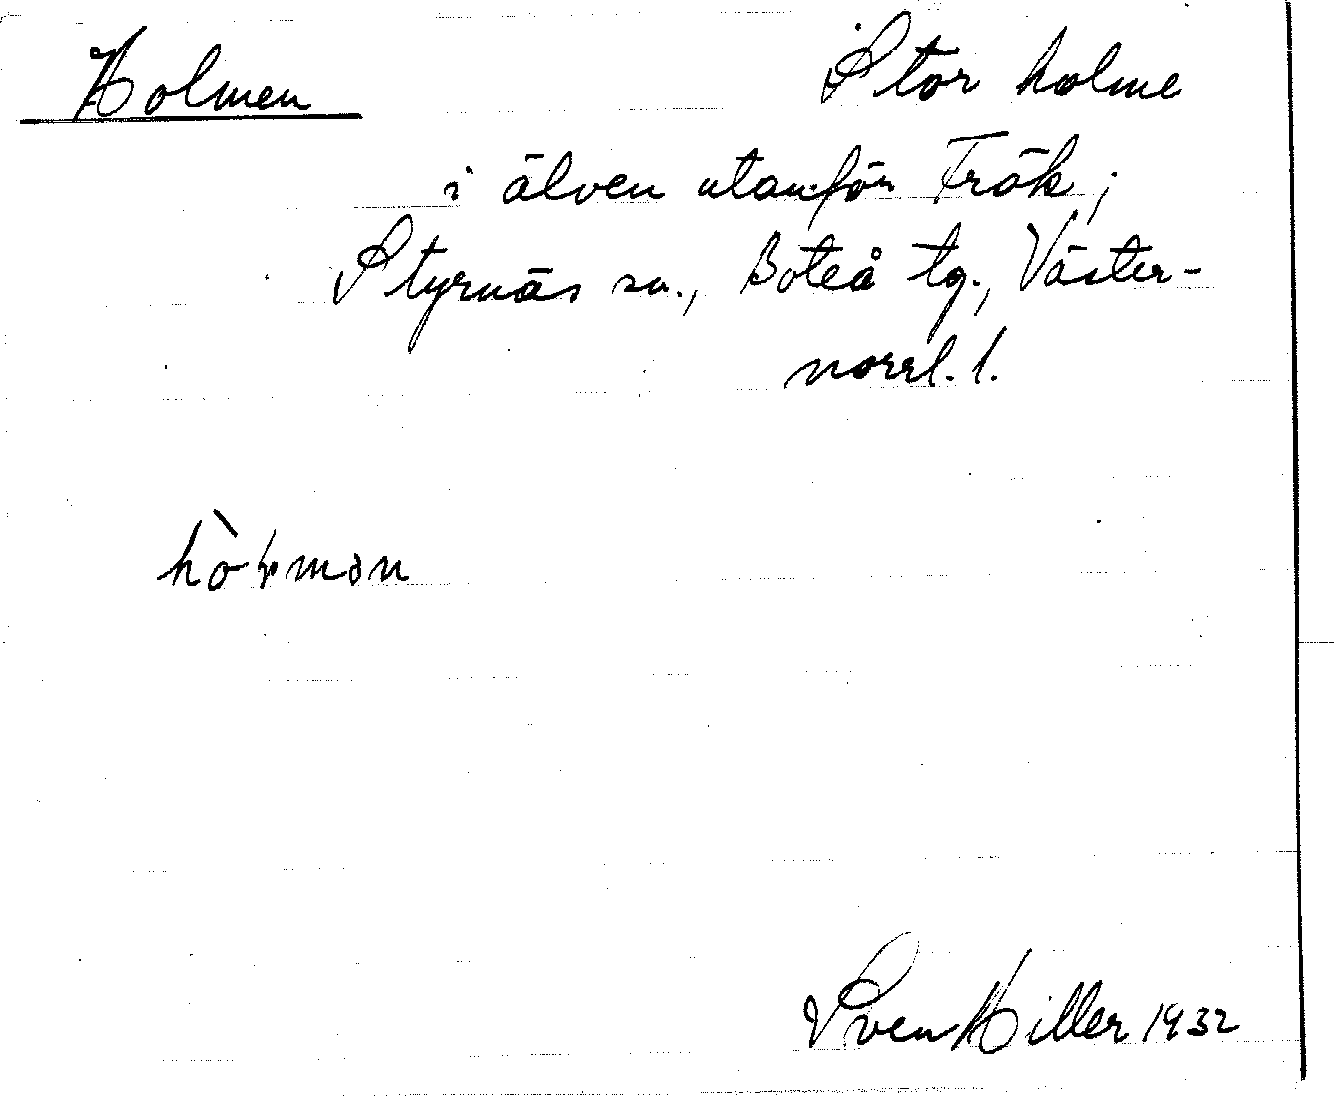 Holmen Stor holme
i älven utanför Frök;
Styrnäs sn., Boteå tg., Väster-
norrl. l.
Sven Hiller 1932